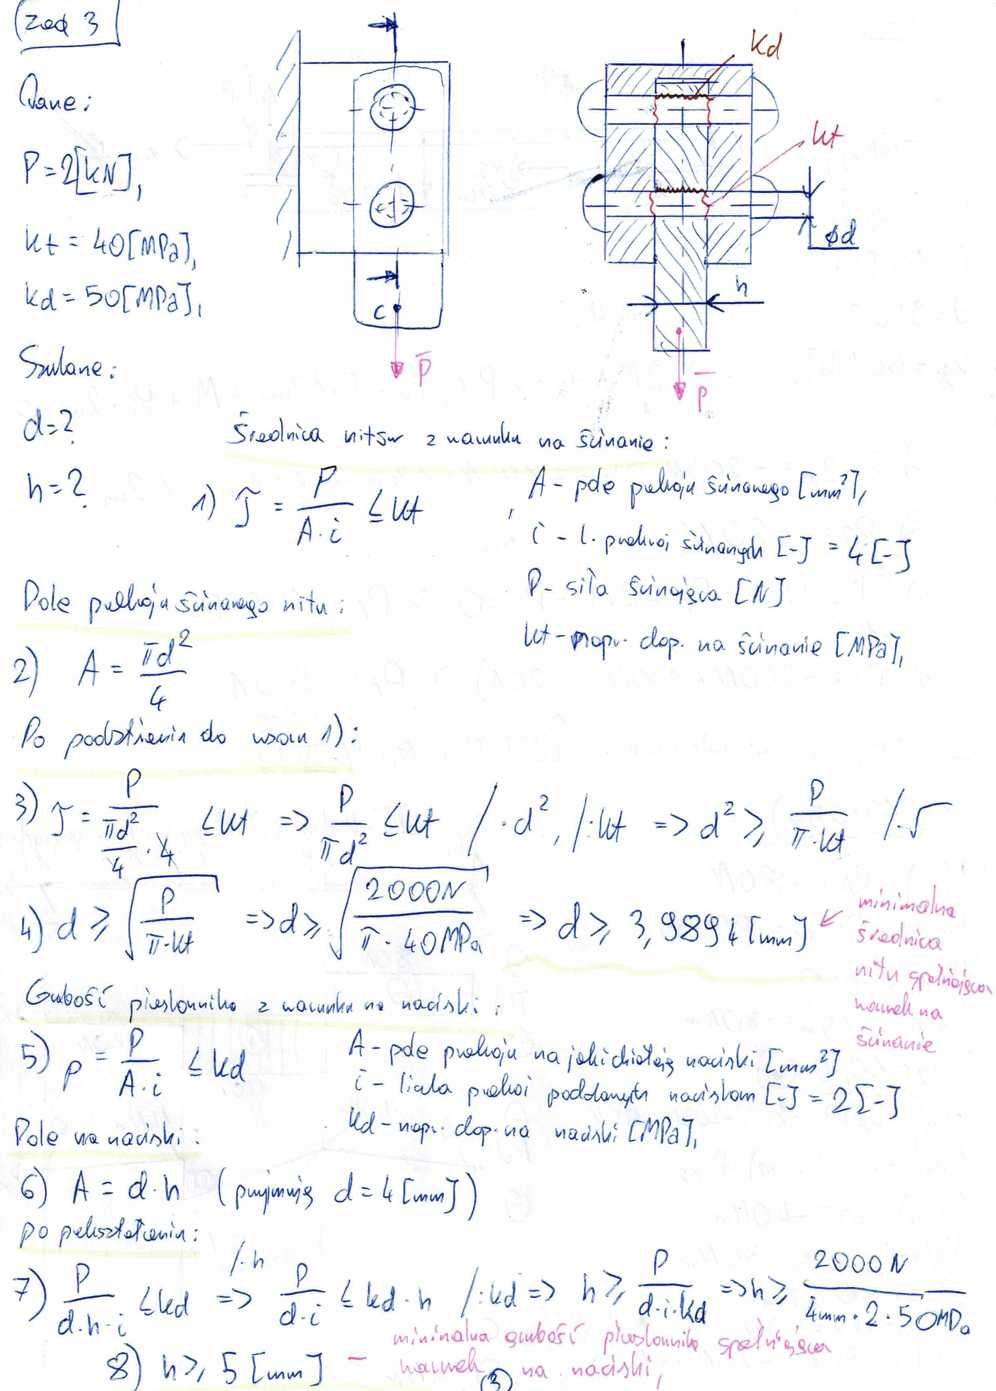 Zad 3
Dane:
P=2[kN],
kt = 40[MPa],
kd = 50[MPa],
Szukane:
d=?
h=?
kd
kt
ϕd
h
C
P
P
Średnica nitów z warunku na ścinanie:
1) τ = P / A·i ≤ kt
A - pole przekroju ścinanego [mm²],
i - l. przekroi ścinanych [-] = 4[-]
P- siła ścinająca [N]
kt - napr. dop. na ścinanie [MPa],
Pole przekroju ścinanego nitu:
2) A = πd² / 4
Po podstawieniu do wzoru 1):
3) τ = P / (πd² / 4 · 4) ≤ kt => P / πd² ≤ kt /·d², /:kt => d² ≥ P / π·kt /·√
4) d ≥ √(P / π·kt) => d ≥ √(2000N / π·40MPa) => d ≥ 3,9894[mm]
minimalna
średnica
nitu spełniająca
warunek na
ścinanie
Grubość płaskownika z warunku na naciski:
5) p = P / A·i ≤ kd
A - pole przekroju na jaki działają naciski [mm²]
i - liczba przekroi poddanych naciskom [-] = 2[-]
kd - napr. dop. na naciski [MPa],
Pole na naciski:
6) A = d·h (przyjmuję d = 4[mm])
po przekształceniu:
7) P / d·h·i ≤ kd /·h => P / d·i ≤ kd·h /:kd => h ≥ P / d·i·kd => h ≥ 2000N / 4mm·2·50MPa
8) h ≥ 5[mm] - minimalna grubość płaskownika spełniająca
warunek na naciski,
3